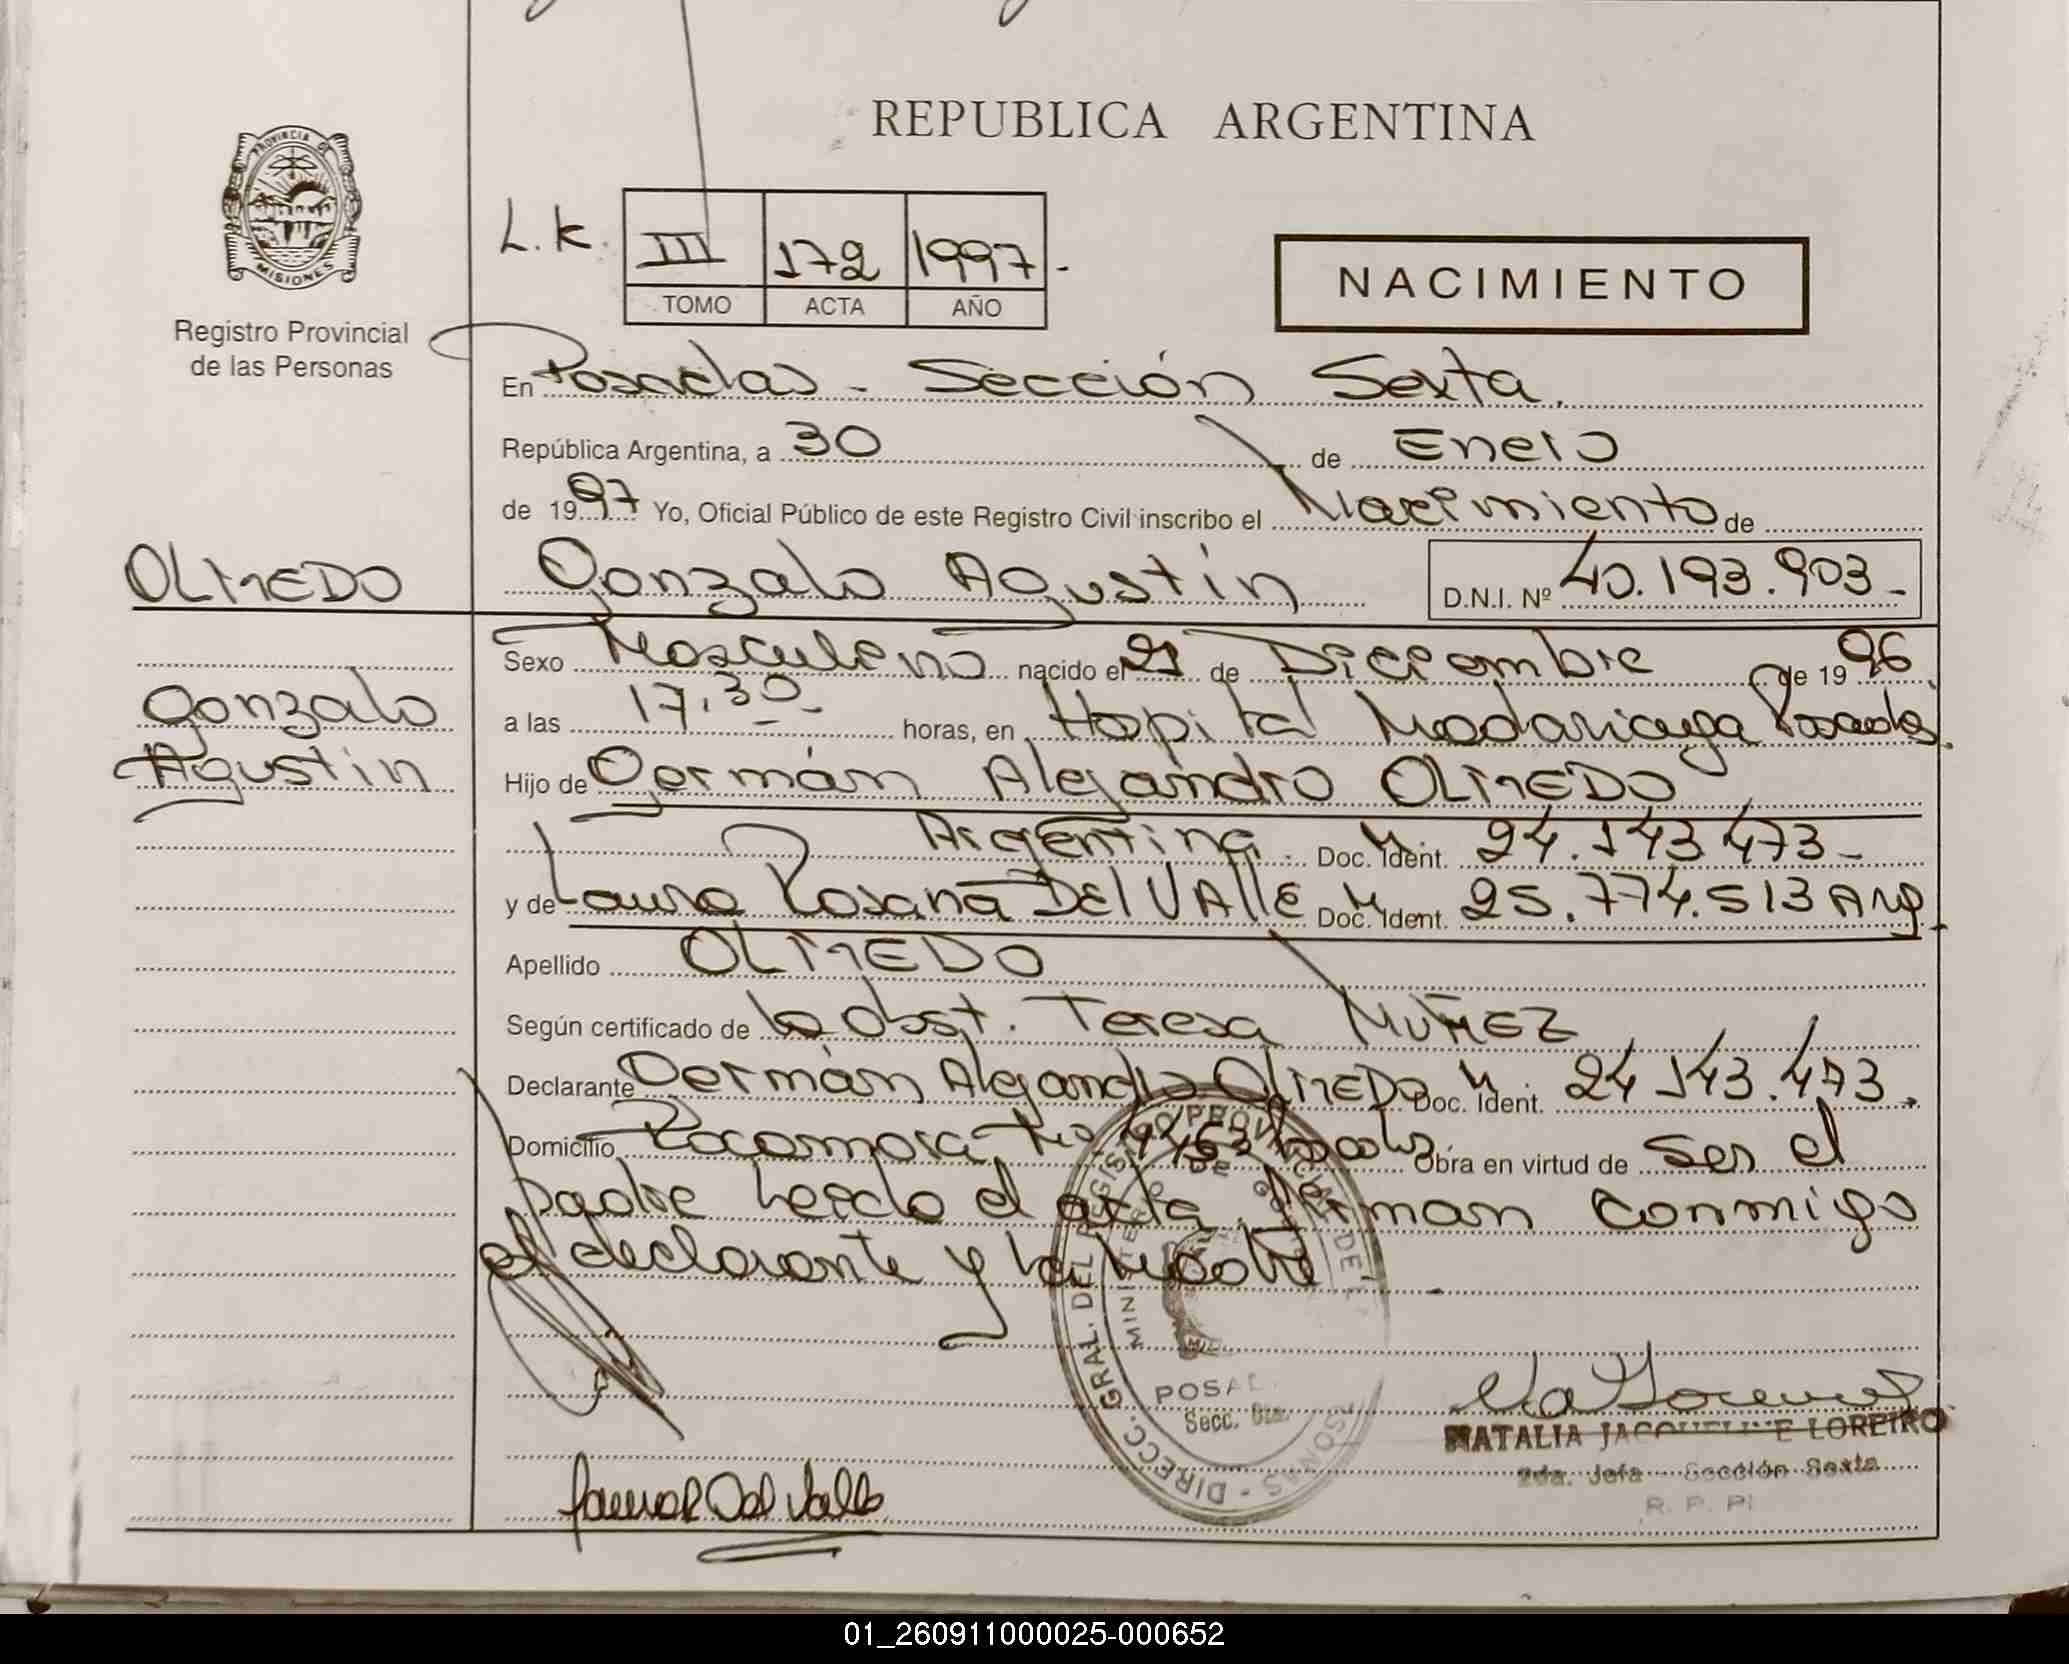 REPUBLICA ARGENTINA
PROVINCIA DE
MISIONES
Registro Provincial
de las Personas
L.K. III 172 1997.-
TOMO ACTA AÑO
NACIMIENTO
En Posadas - Sección Sexta.
República Argentina, a 30 de Enero
de 1997 Yo, Oficial Público de este Registro Civil inscribo el Nacimiento de
OLMEDO
Gonzalo Agustin D.N.I. Nº 40.193.903-
Sexo Masculino nacido el 21 de Diciembre de 1996
Gonzalo
Agustin
a las 17,30 horas, en Hopital Madariaga Posadas.
Hijo de Germán Alejandro OLMEDO
Argentina. Doc. Ident. 24.143.473-
y de Laura Rosana DEl VAllE Doc. Ident. 25.774.513 Arg.
Apellido OLMEDO
Según certificado de la Obst. Teresa MUÑEZ
Declarante Germán Alejandro OLMEDO Doc. Ident. 24.143.473.
Domicilio Rocamora Nº 4463 Posadas. Obra en virtud de ser el
padre Leido el acta firman conmigo
el declarante y la Madre.
DIRECC. GRAL. DEL REGISTRO PROVINCIAL DE
MISIONES
MINISTERIO DE GOBIERNO
POSAD
Secc. 6ta.
NATALIA JACQUELINE LOREIRO
2da. Jefa - Sección Sexta
R. P. P.
Del Valle
01_260911000025-000652